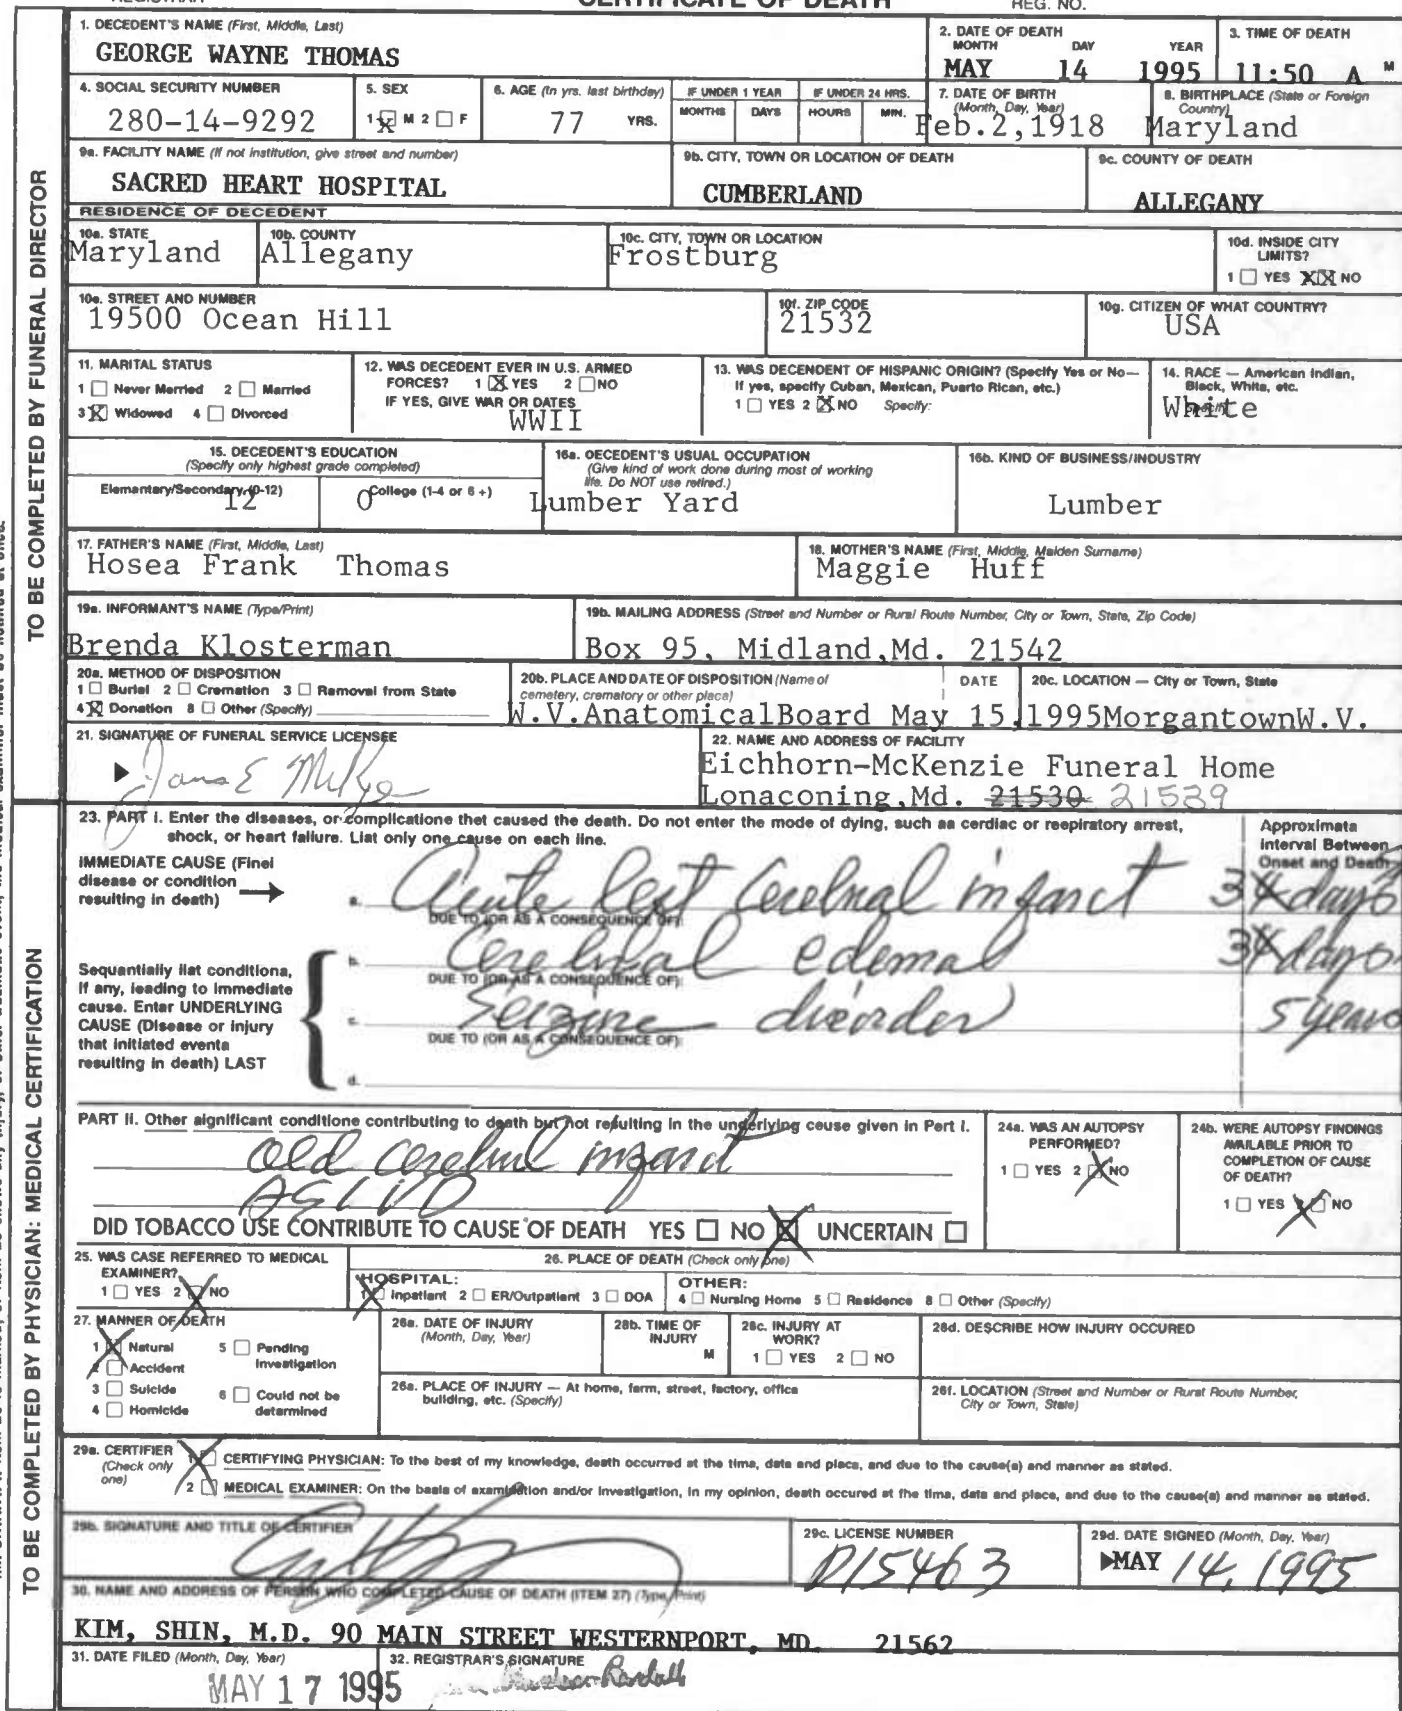 CERTIFICATE OF DEATH
REG. NO.
1. DECEDENT'S NAME (First, Middle, Last)
GEORGE WAYNE THOMAS
2. DATE OF DEATH
MONTH DAY YEAR
MAY 14 1995
3. TIME OF DEATH
11:50 A M
4. SOCIAL SECURITY NUMBER
280-14-9292
5. SEX
1 X M 2 F
6. AGE (In yrs. last birthday)
77 YRS.
IF UNDER 1 YEAR
MONTHS DAYS
IF UNDER 24 HRS.
HOURS MIN.
7. DATE OF BIRTH
(Month, Day, Year)
Feb.2,1918
8. BIRTHPLACE (State or Foreign
Country)
Maryland
9a. FACILITY NAME (If not institution, give street and number)
SACRED HEART HOSPITAL
9b. CITY, TOWN OR LOCATION OF DEATH
CUMBERLAND
9c. COUNTY OF DEATH
ALLEGANY
RESIDENCE OF DECEDENT
10a. STATE
Maryland
10b. COUNTY
Allegany
10c. CITY, TOWN OR LOCATION
Frostburg
10d. INSIDE CITY
LIMITS?
1 YES XX NO
10e. STREET AND NUMBER
19500 Ocean Hill
10f. ZIP CODE
21532
10g. CITIZEN OF WHAT COUNTRY?
USA
11. MARITAL STATUS
1 Never Married 2 Married
3 X Widowed 4 Divorced
12. WAS DECEDENT EVER IN U.S. ARMED
FORCES? 1 X YES 2 NO
IF YES, GIVE WAR OR DATES
WWII
13. WAS DECENDENT OF HISPANIC ORIGIN? (Specify Yes or No—
If yes, specify Cuban, Mexican, Puerto Rican, etc.)
1 YES 2 X NO Specify:
14. RACE — American Indian,
Black, White, etc.
White
15. DECEDENT'S EDUCATION
(Specify only highest grade completed)
Elementary/Secondary (0-12)
12
College (1-4 or 6 +)
0
16a. OECEDENT'S USUAL OCCUPATION
(Give kind of work done during most of working
life. Do NOT use retired.)
Lumber Yard
16b. KIND OF BUSINESS/INDUSTRY
Lumber
17. FATHER'S NAME (First, Middle, Last)
Hosea Frank Thomas
18. MOTHER'S NAME (First, Middle, Maiden Surname)
Maggie Huff
19a. INFORMANT'S NAME (Type/Print)
Brenda Klosterman
19b. MAILING ADDRESS (Street and Number or Rural Route Number, City or Town, State, Zip Code)
Box 95, Midland,Md. 21542
20a. METHOD OF DISPOSITION
1 Burial 2 Cremation 3 Removal from State
4 X Donation 8 Other (Specify)
20b. PLACE AND DATE OF DISPOSITION (Name of
cemetery, crematory or other place)
DATE
20c. LOCATION — City or Town, State
W.V.AnatomicalBoard May 15,1995MorgantownW.V.
21. SIGNATURE OF FUNERAL SERVICE LICENSEE
22. NAME AND ADDRESS OF FACILITY
Eichhorn-McKenzie Funeral Home
Lonaconing,Md. 21530 21539
23. PART I. Enter the diseases, or complications thet caused the death. Do not enter the mode of dying, such aa cerdiac or reepiratory arrest,
shock, or heart failure. Liat only one cause on each line.
Approximata
Interval Between
Onset and Death
IMMEDIATE CAUSE (Finel
disease or condition
resulting in death)
a. Acute left Cerebral infarct 3 4 days
DUE TO (OR AS A CONSEQUENCE OF):
b. Cerebral edema 3 4 days
DUE TO (OR AS A CONSEQUENCE OF):
c. Seizure disorder 5 years
DUE TO (OR AS A CONSEQUENCE OF):
d.
Sequantially liat conditiona,
If any, leading to Immediate
cause. Enter UNDERLYING
CAUSE (Disease or injury
that initiated eventa
resulting in death) LAST
PART II. Other aignificant conditione contributing to death but not resulting in the underlying ceuse given in Pert I.
old cerebral infarct
ASCVD
DID TOBACCO USE CONTRIBUTE TO CAUSE OF DEATH YES NO X UNCERTAIN
24a. WAS AN AUTOPSY
PERFORMED?
1 YES 2 X NO
24b. WERE AUTOPSY FINDINGS
AVAILABLE PRIOR TO
COMPLETION OF CAUSE
OF DEATH?
1 YES 2 X NO
25. WAS CASE REFERRED TO MEDICAL
EXAMINER?
1 YES 2 X NO
26. PLACE OF DEATH (Check only one)
HOSPITAL:
1 X Inpatient 2 ER/Outpatient 3 DOA
OTHER:
4 Nursing Home 5 Residence 8 Other (Specify)
27. MANNER OF DEATH
1 X Natural 5 Pending
Investigation
2 Accident
3 Suicide 6 Could not be
determined
4 Homicide
28a. DATE OF INJURY
(Month, Day, Year)
28b. TIME OF
INJURY
M
28c. INJURY AT
WORK?
1 YES 2 NO
28d. DESCRIBE HOW INJURY OCCURED
28a. PLACE OF INJURY — At home, farm, street, factory, office
building, etc. (Specify)
28f. LOCATION (Street and Number or Rural Route Number,
City or Town, State)
29a. CERTIFIER
(Check only
one)
1 X CERTIFYING PHYSICIAN: To the best of my knowledge, death occurred at the tima, data and placa, and due to the cause(e) and manner as stated.
2 MEDICAL EXAMINER: On the basis of examination and/or Investigation, in my opinion, death occured at the tima, data and place, and due to the cause(a) and manner as stated.
29b. SIGNATURE AND TITLE OF CERTIFIER
29c. LICENSE NUMBER
D15463
29d. DATE SIGNED (Month, Day, Year)
MAY 14, 1995
30. NAME AND ADDRESS OF PERSON WHO COMPLETED CAUSE OF DEATH (ITEM 27) (Type, Print)
KIM, SHIN, M.D. 90 MAIN STREET WESTERNPORT, MD. 21562
31. DATE FILED (Month, Day, Year)
MAY 17 1995
32. REGISTRAR'S SIGNATURE
TO BE COMPLETED BY FUNERAL DIRECTOR
TO BE COMPLETED BY PHYSICIAN: MEDICAL CERTIFICATION